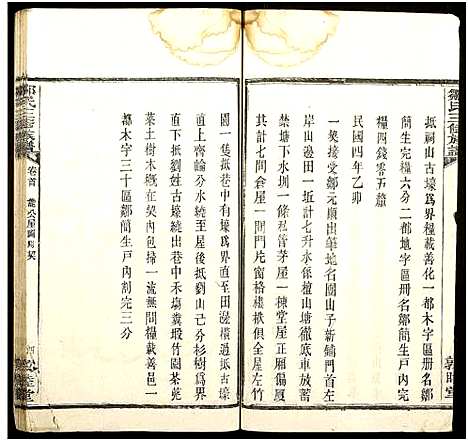 鄒氏三修族譜
抵祠山古壕爲界糧載善化一都木字區册名鄒
簡生完糧六分二都地字區冊名鄒簡生完
糧四錢零五釐
民國四年乙卯
一契接受鄒元順出筆地名團山子新鋪門首車
岸山邊田一坵計七升水係檀山塘徹底車放蓄
禁塘下水圳一條私管茅屋一棟堂屋正廂偏廈
共計七間倉屋一間門片窗格樓栿俱全屋左竹
園一隻抵巷中有壕爲界屋後直至田邊橫過抵古壕
上齊論分水繞至屋後抵劉山己分杉樹爲界
直下抵劉姓古壕繞出巷中禾塲糞塅竹園茶蔸
菜土樹木槪在契內包掃一流無遺糧載善邑一
都木字三十區鄒簡生戶內割完三分
鄒氏三修族譜
卷首
敦睦堂
敦睦堂